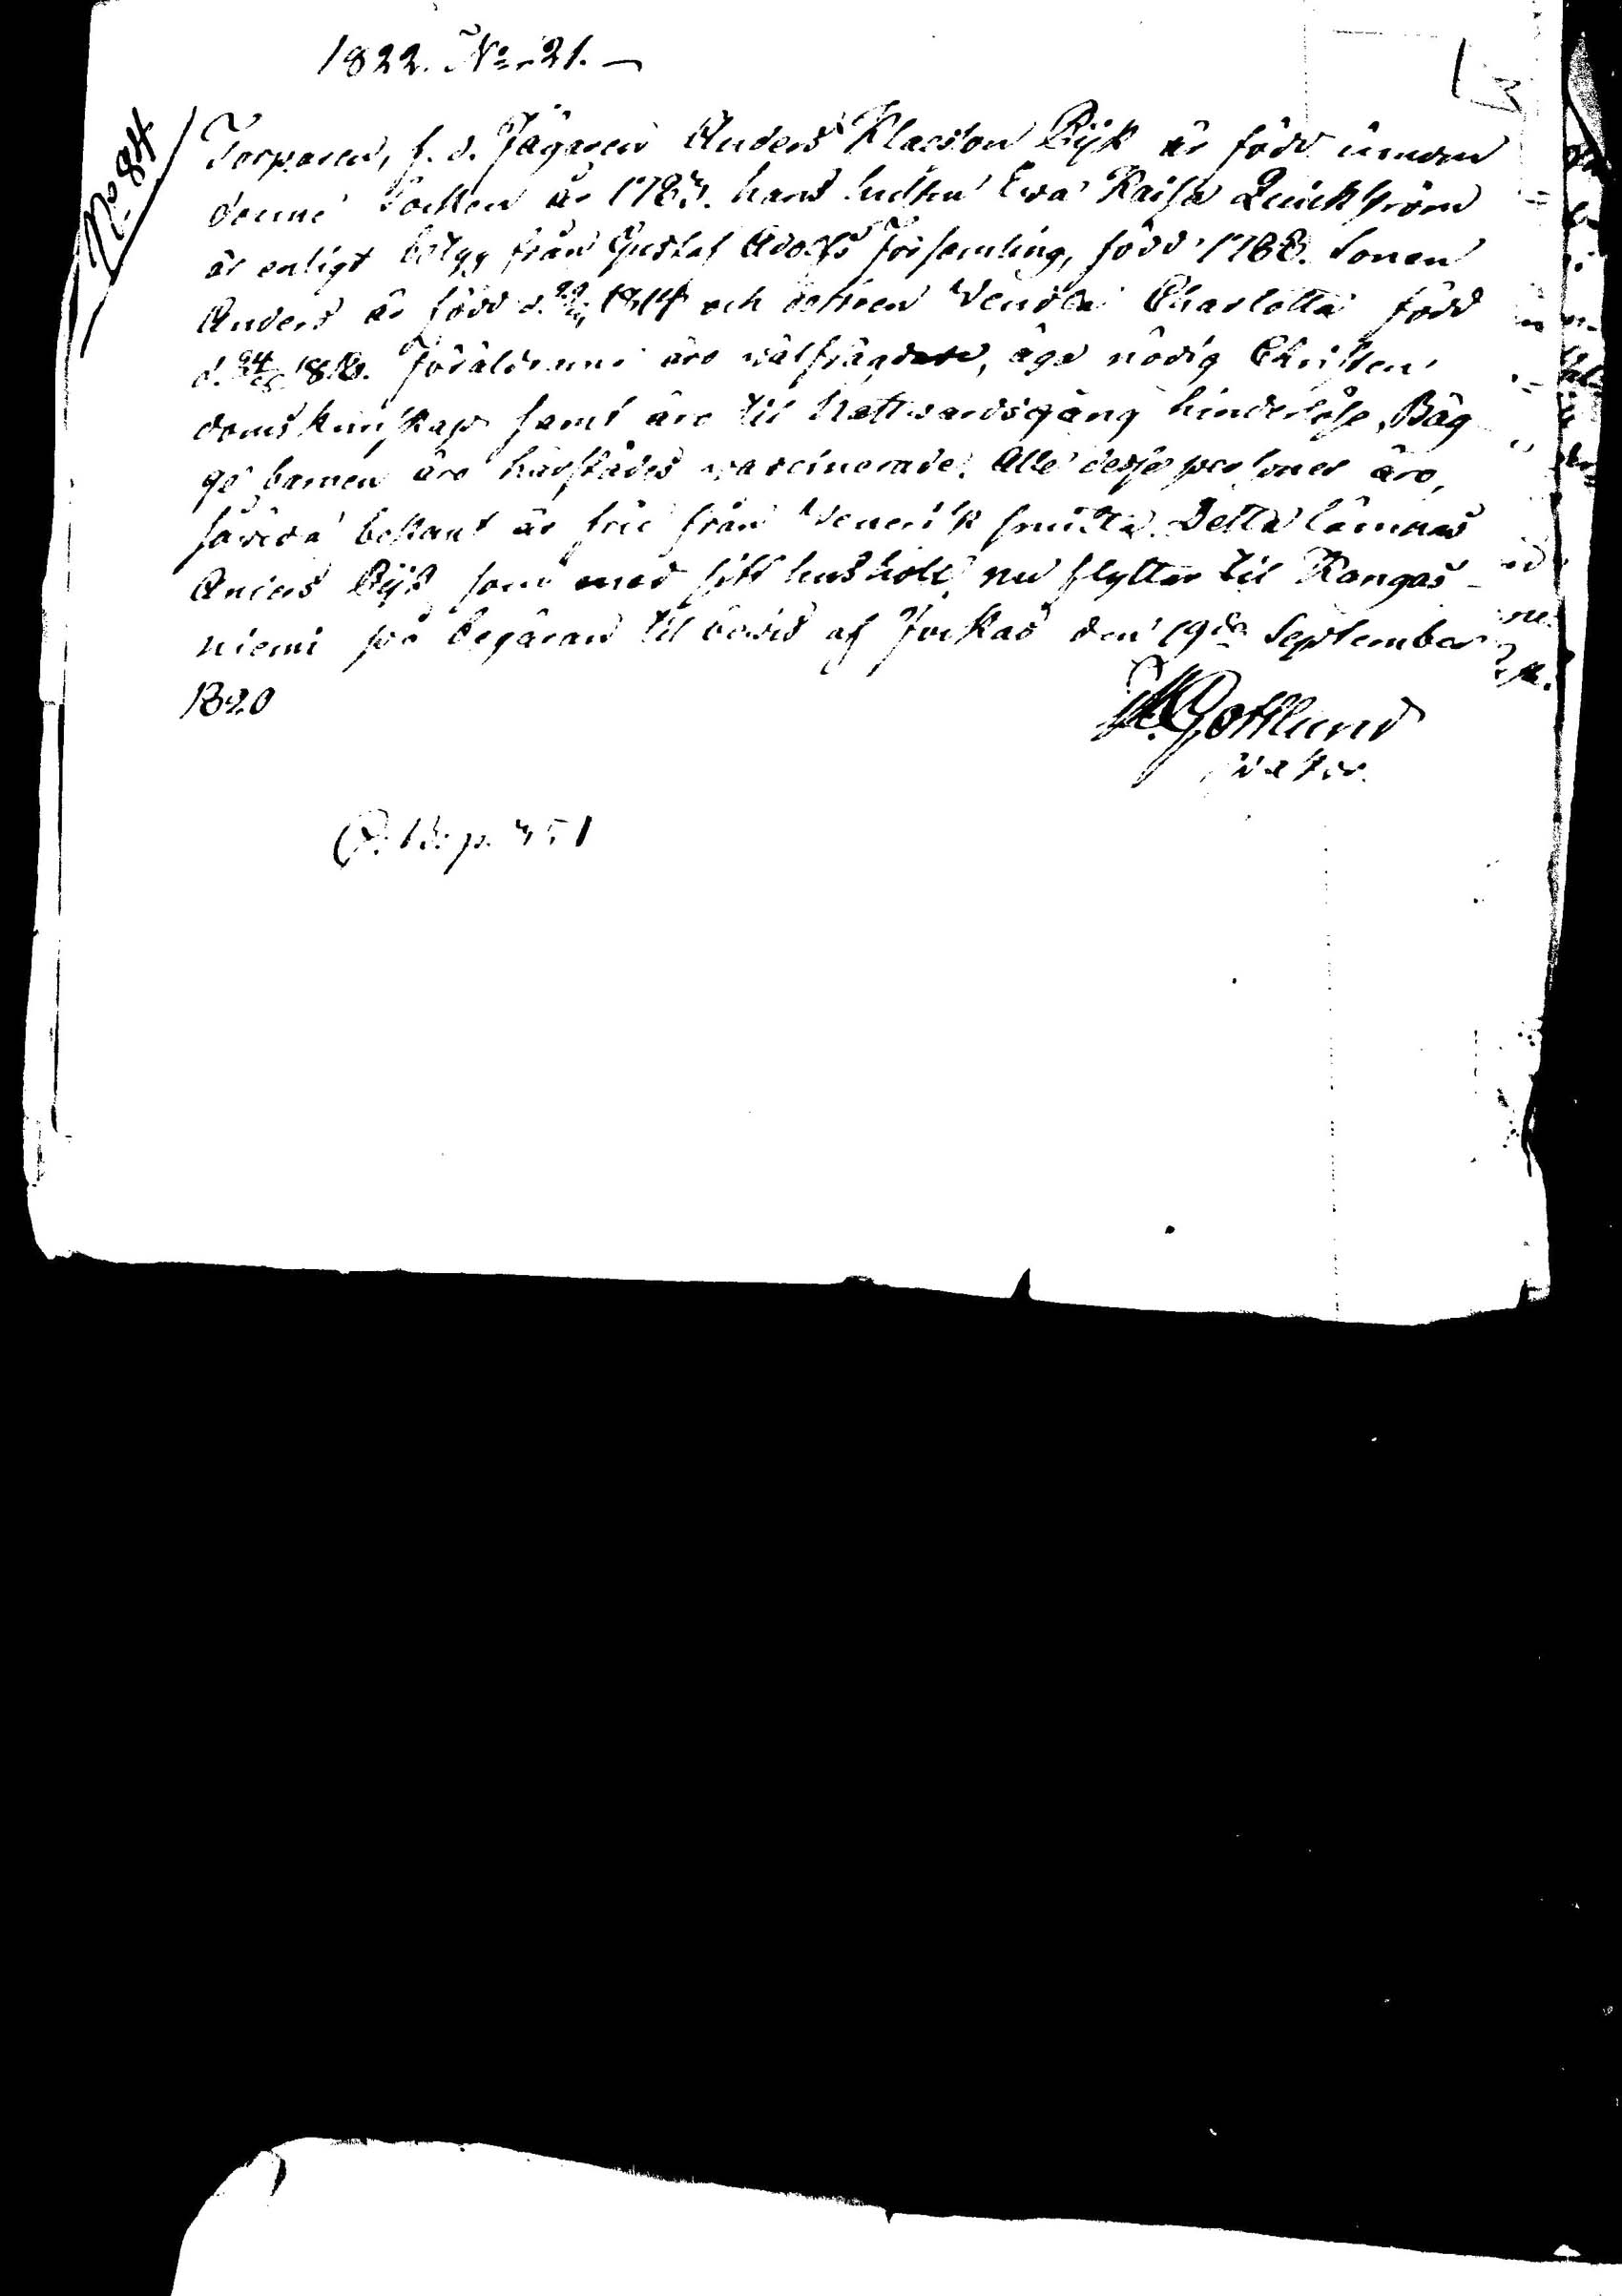 1822. No 21.
No 84
Torparen, f. d. Jägaren Anders Klaesson Rijk är född innom
denne Socken år 1783. hans hustru Ewa Kaisa Quickström
är enligt betyg från Gustaf Adolfs Församling, född 1788. Sonen
Anders är född d. 1814 och dottren Vendla Charlotta född
d. 24 1818. Föräldrarne äro wälfrägdade, äga nödig Christen
doms kunskap samt äro til Nattwardsgång hinderlöse. Bäg
ge barnen äro härstädes vaccinerade. Alle desse personer äro,
såvida bekant är frie från Venerisk smitta. Detta lämnas
Anders Rijk som med sitt hushold nu flyttar til Kangas
niemi på begäran til bewis af Jockas den 19de September
1820
Gottlund
p. 351